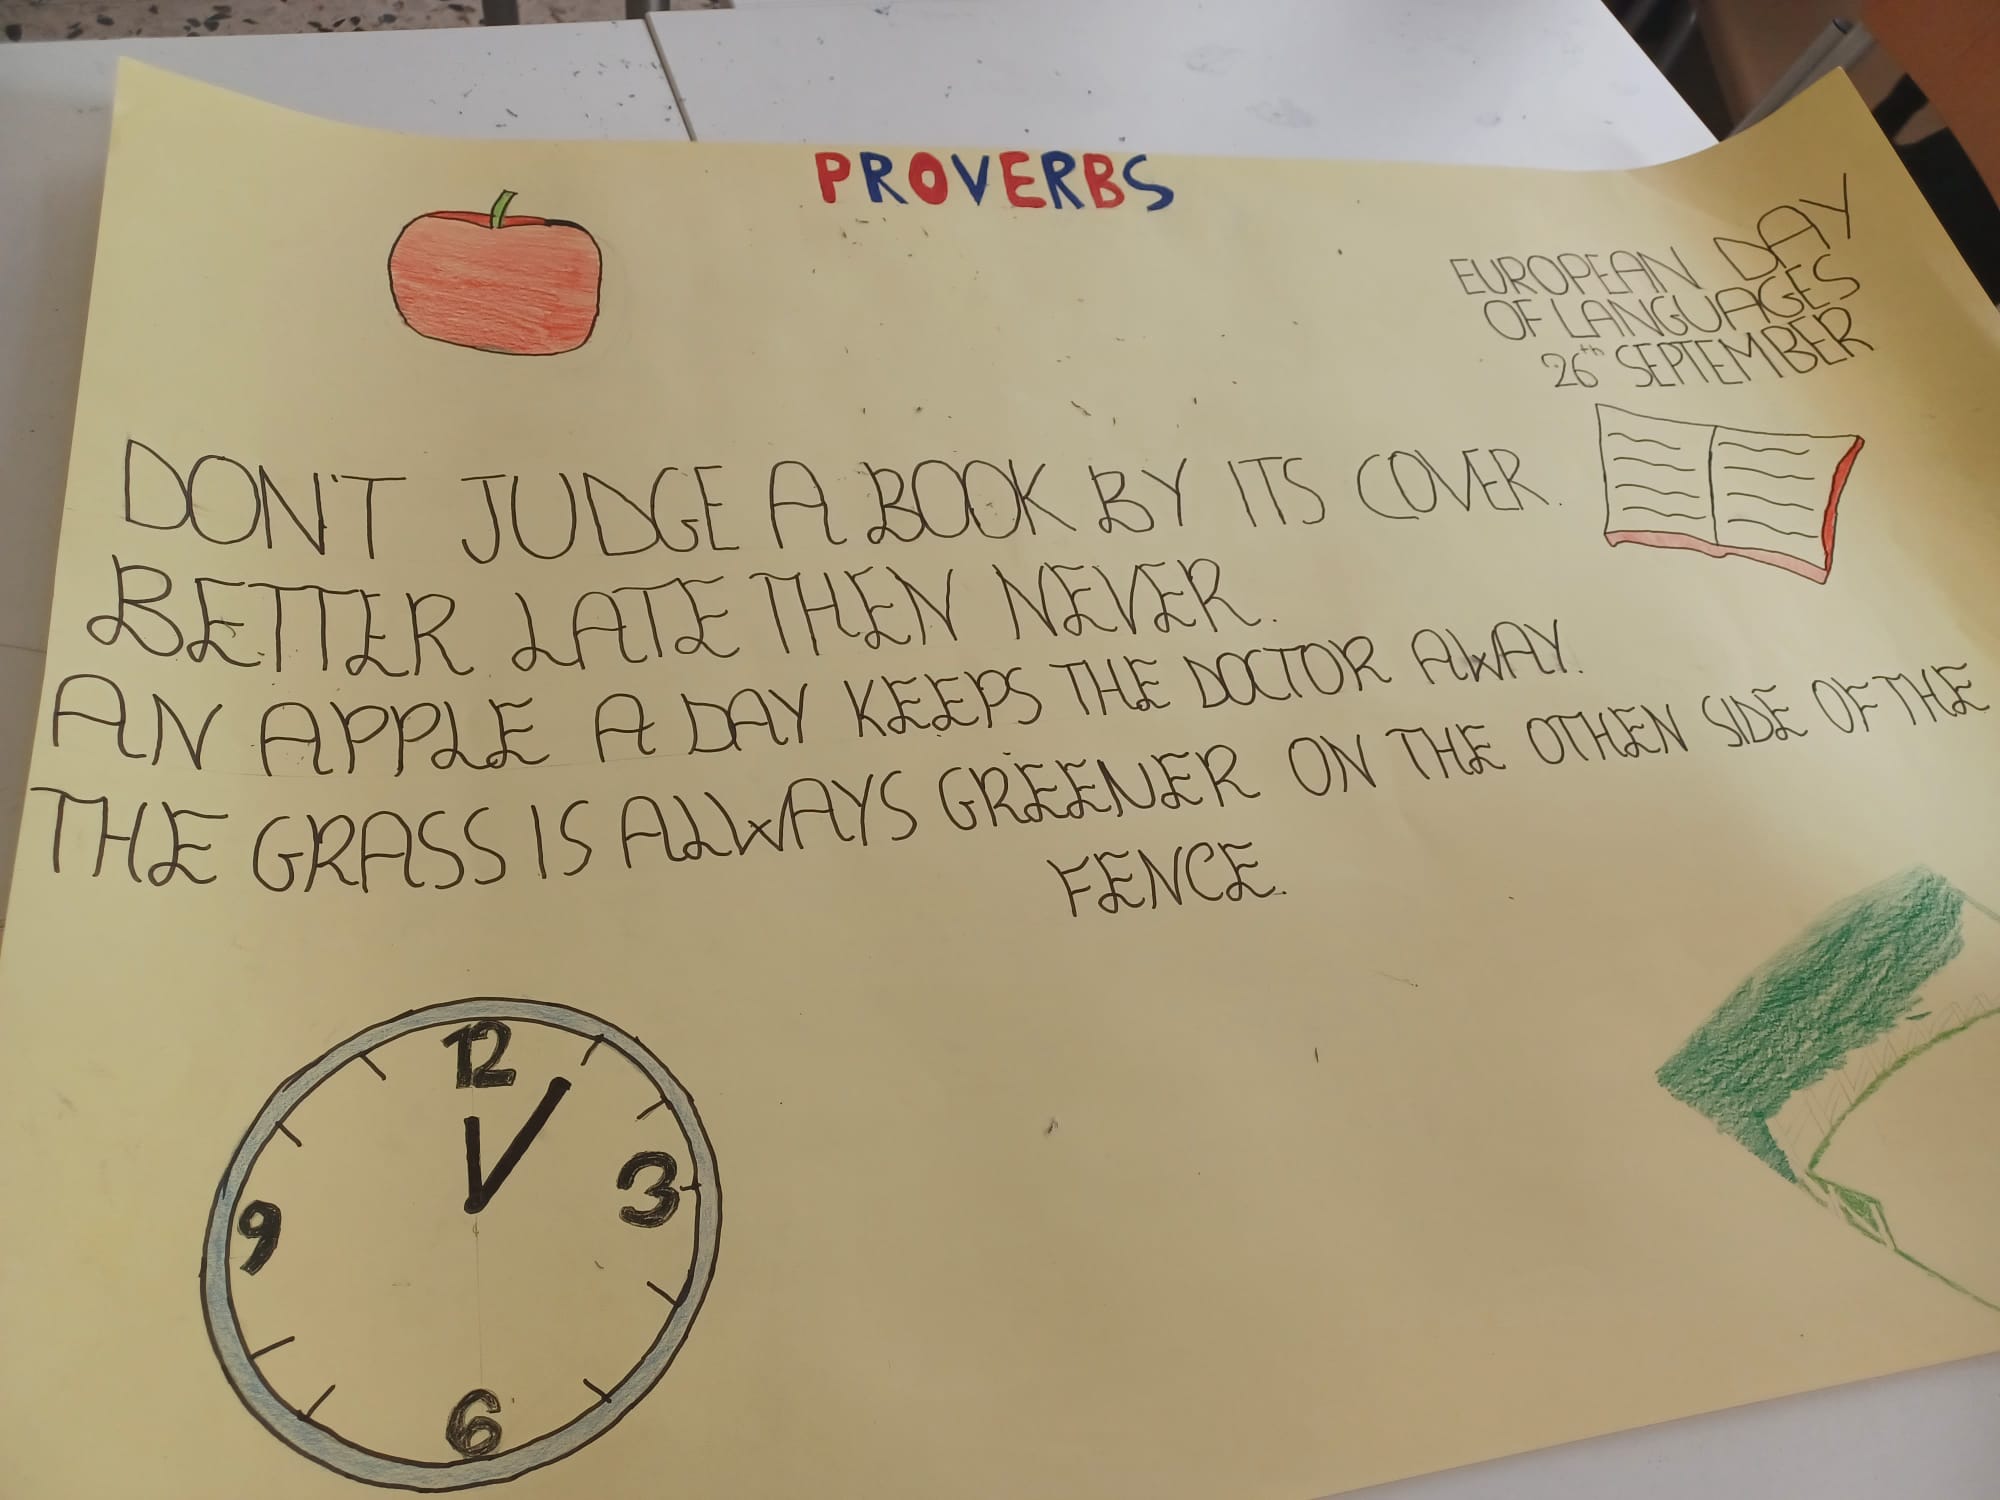 PROVERBS
EUROPEAN DAY
OF LANGUAGES
26th SEPTEMBER
DON'T JUDGE A BOOK BY ITS COVER.
BETTER LATE THEN NEVER.
AN APPLE A DAY KEEPS THE DOCTOR AWAY.
THE GRASS IS ALWAYS GREENER ON THE OTHEN SIDE OF THE
FENCE.
12
3
9
6